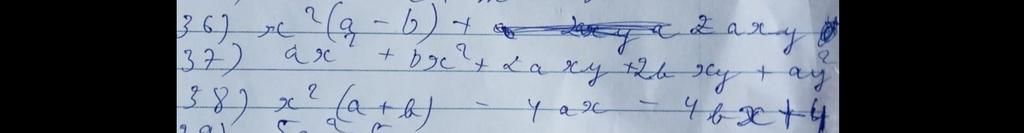 36) x²(a - b) + 2axy
37) ax² + bx² + 2axy + 2bxy + ay²
38) x² (a + b) - 4ax - 4bx + 4